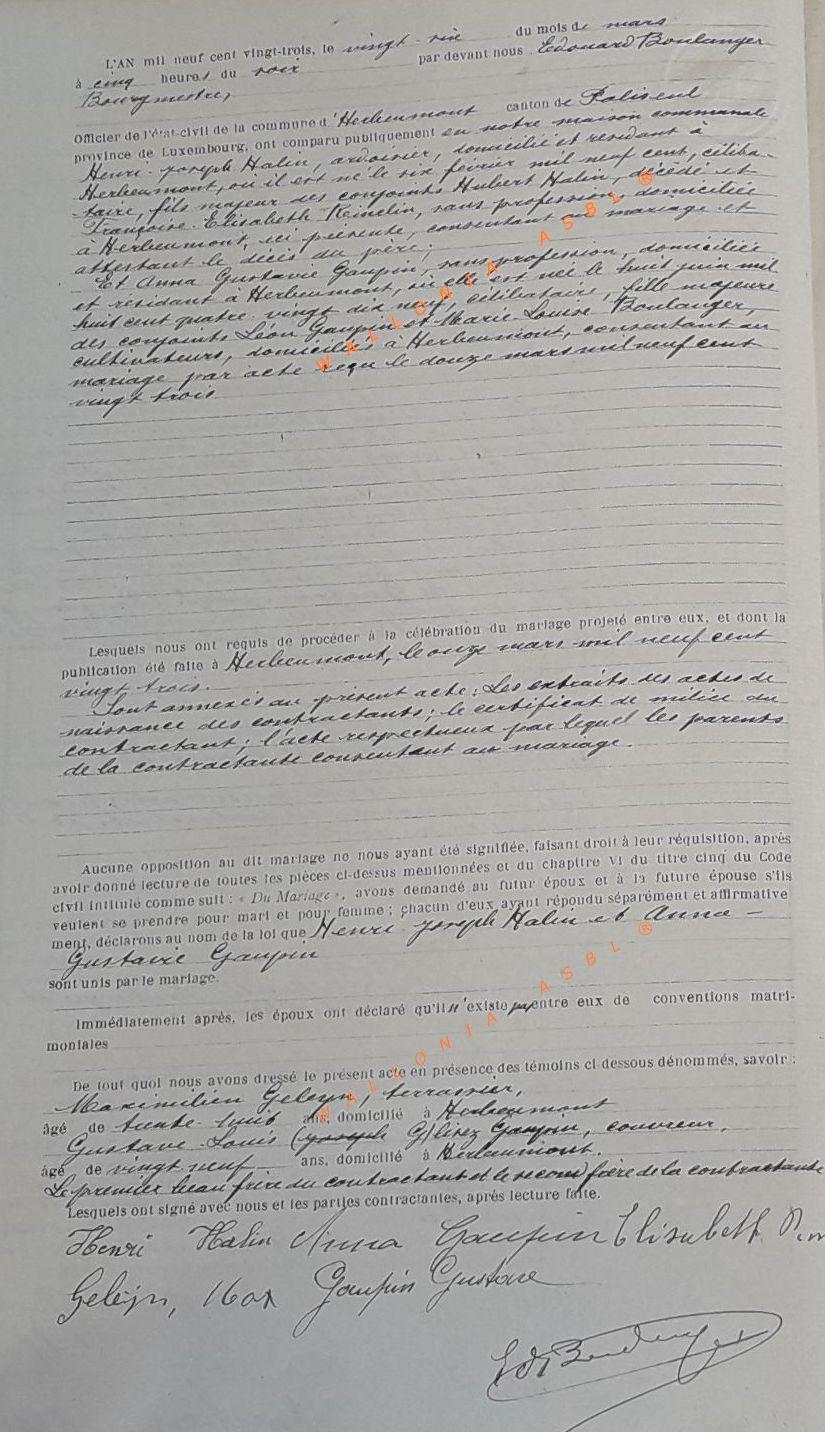 L'AN mil neuf cent vingt-trois, le vingt-six du mois de mars
à cinq heures du soir par devant nous Edouard Boulanger
Bourgmestre,
Officier de l'état-civil de la commune d'Herbeumont canton de Paliseul
province de Luxembourg, ont comparu publiquement en notre maison communale
Henri-Joseph Halin, ardoisier, domicilié et résidant à
Herbeumont, où il est né le six février mil neuf cent, céliba-
-taire, fils majeur des conjoints Hubert Halin, décédé et
Françoise-Elisabeth sans profession, domiciliée
à Herbeumont, ici présente, consentant au mariage et
attestant le décès du père;
Et Anna Gustavie Gaupin, sans profession, domiciliée
et résidant à Herbeumont, où elle est née le huit juin mil
huit cent quatre-vingt dix neuf, célibataire, fille majeure
des conjoints Léon Gaupin et Marie Louise Boulanger,
cultivateurs, domiciliés à Herbeumont, consentant au
mariage par acte reçu le douze mars mil neuf cent
vingt trois.
Lesquels nous ont requis de procéder à la célébration du mariage projeté entre eux, et dont la
publication été faite à Herbeumont, le onze mars mil neuf cent
vingt trois.
Sont annexés au présent acte: Les extraits des actes de
naissance des contractants; le certificat de milice du
contractant; l'acte respectueux par lequel les parents
de la contractante consentent au mariage.
Aucune opposition au dit mariage ne nous ayant été signifiée, faisant droit à leur réquisition, après
avoir donné lecture de toutes les pièces ci-dessus mentionnées et du chapitre VI du titre cinq du Code
civil intitulé comme suit : « Du Mariage », avons demandé au futur époux et à la future épouse s'ils
veulent se prendre pour mari et pour femme ; chacun d'eux ayant répondu séparément et affirmative
ment, déclarons au nom de la loi que Henri-Joseph Halin et Anna-
Gustavie Gaupin
sont unis par le mariage.
Immédiatement après, les époux ont déclaré qu'il n'existe pas entre eux de conventions matri-
moniales
De tout quoi nous avons dressé le présent acte en présence des témoins ci dessous dénommés, savoir :
Maximilien Geleyn, terrassier,
âgé de trente-huit ans, domicilié à Herbeumont
Gustave-Louis (Joseph G) lisez Gaupin, couvreur,
âgé de vingt neuf ans, domicilié à Herbeumont.
Le premier beau frère du contractant et le second frère de la contractante
Lesquels ont signé avec nous et les parties contractantes, après lecture faite.
Henri Halin Anna Gaupin Elisabeth
Geleyn, Max Gaupin Gustave
Ed Boulanger
WALLONIA ASBL ®
WALLONIA ASBL ®